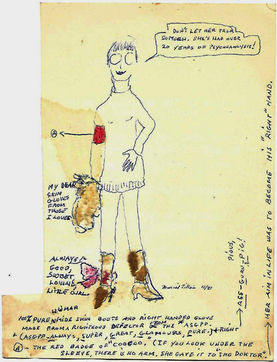 DON'T LET HER FOOL
SOMEONE. SHE'S HAD OVER
20 YEARS OF PSYCHOANALYSIS!
A
MY DEAR
SKIN
GLOVES
FROM
THOSE
I LOVE
ALWAYS
GOOD,
SWEET,
LOVING
LITTLE GIRL.
11/81
PIOUS,
→ ASS-GURU PIG!
→ HER AIM IN LIFE WAS TO BECOME HIS "RIGHT" HAND.
HUMAN
100% PURE WHIDE SKIN BOOTS AND RIGHT HANDED GLOVE
MADE FROM A RIGHTEOUS DEFECTOR OF THE "ASGPP."
(ASGPP-ALWAYS, SUPER, GREAT, GLAMOURS, PURE.) + RIGHT
A - THE RED BADGE OF "COOCOO." (IF YOU LOOK UNDER THE
SLEEVE, THERE IS NO ARM, SHE GAVE IT TO "THE DOKTOR."